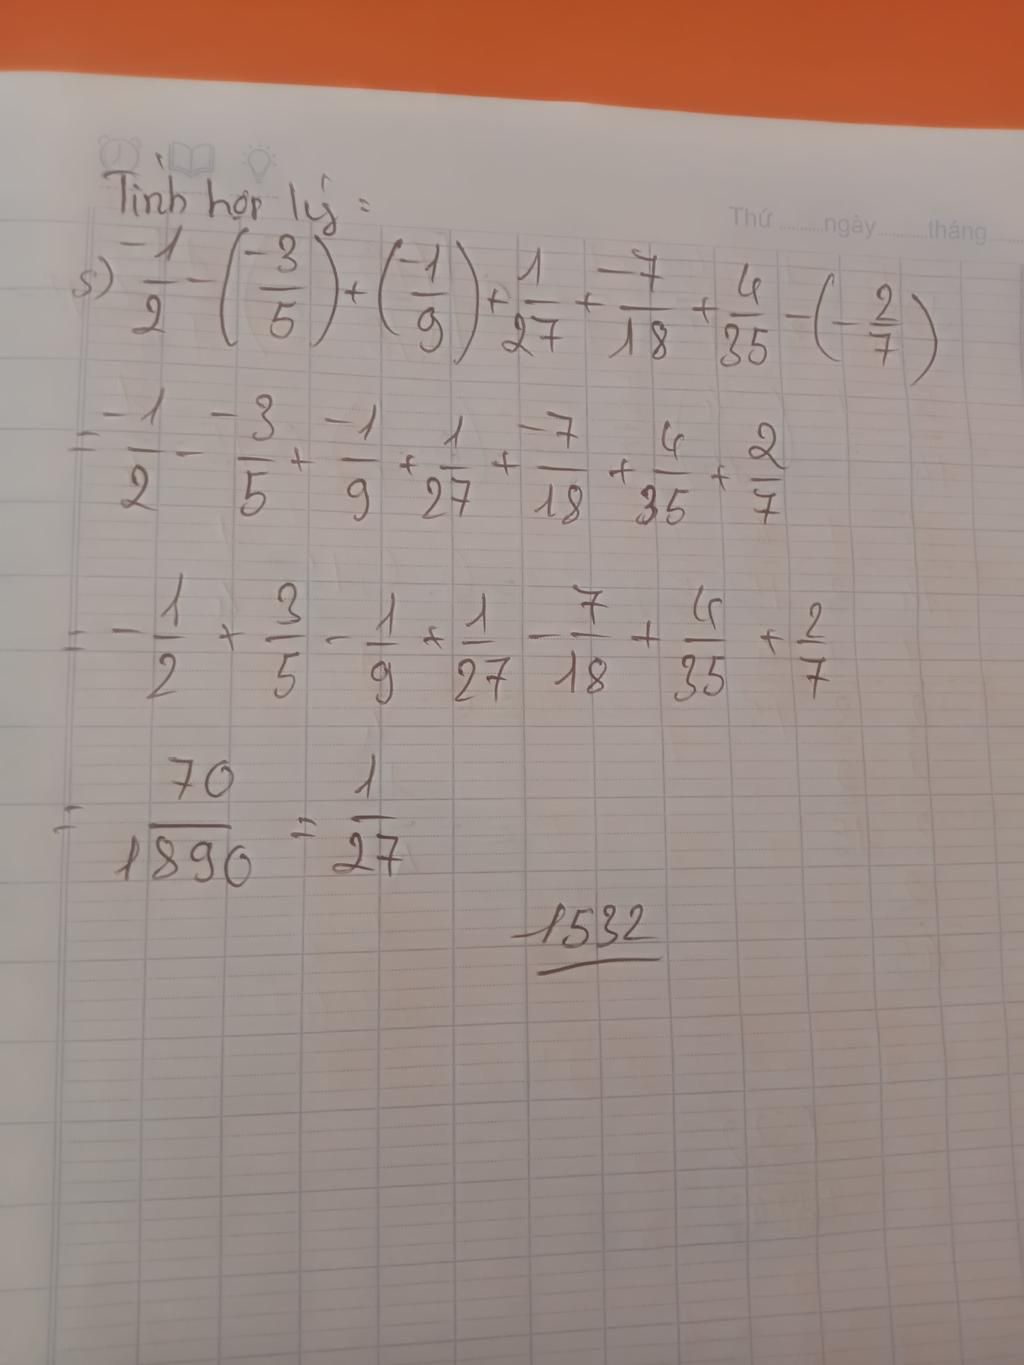 Tính hợp lý:
Thứ ........ngày.........tháng
s) -1/2 - (-3/5) + (-1/9) + 1/27 + -7/18 + 4/35 - (-2/7)
= -1/2 - -3/5 + -1/9 + 1/27 + -7/18 + 4/35 + 2/7
= -1/2 + 3/5 - 1/9 + 1/27 - 7/18 + 4/35 + 2/7
= 70/1890 = 1/27
1532